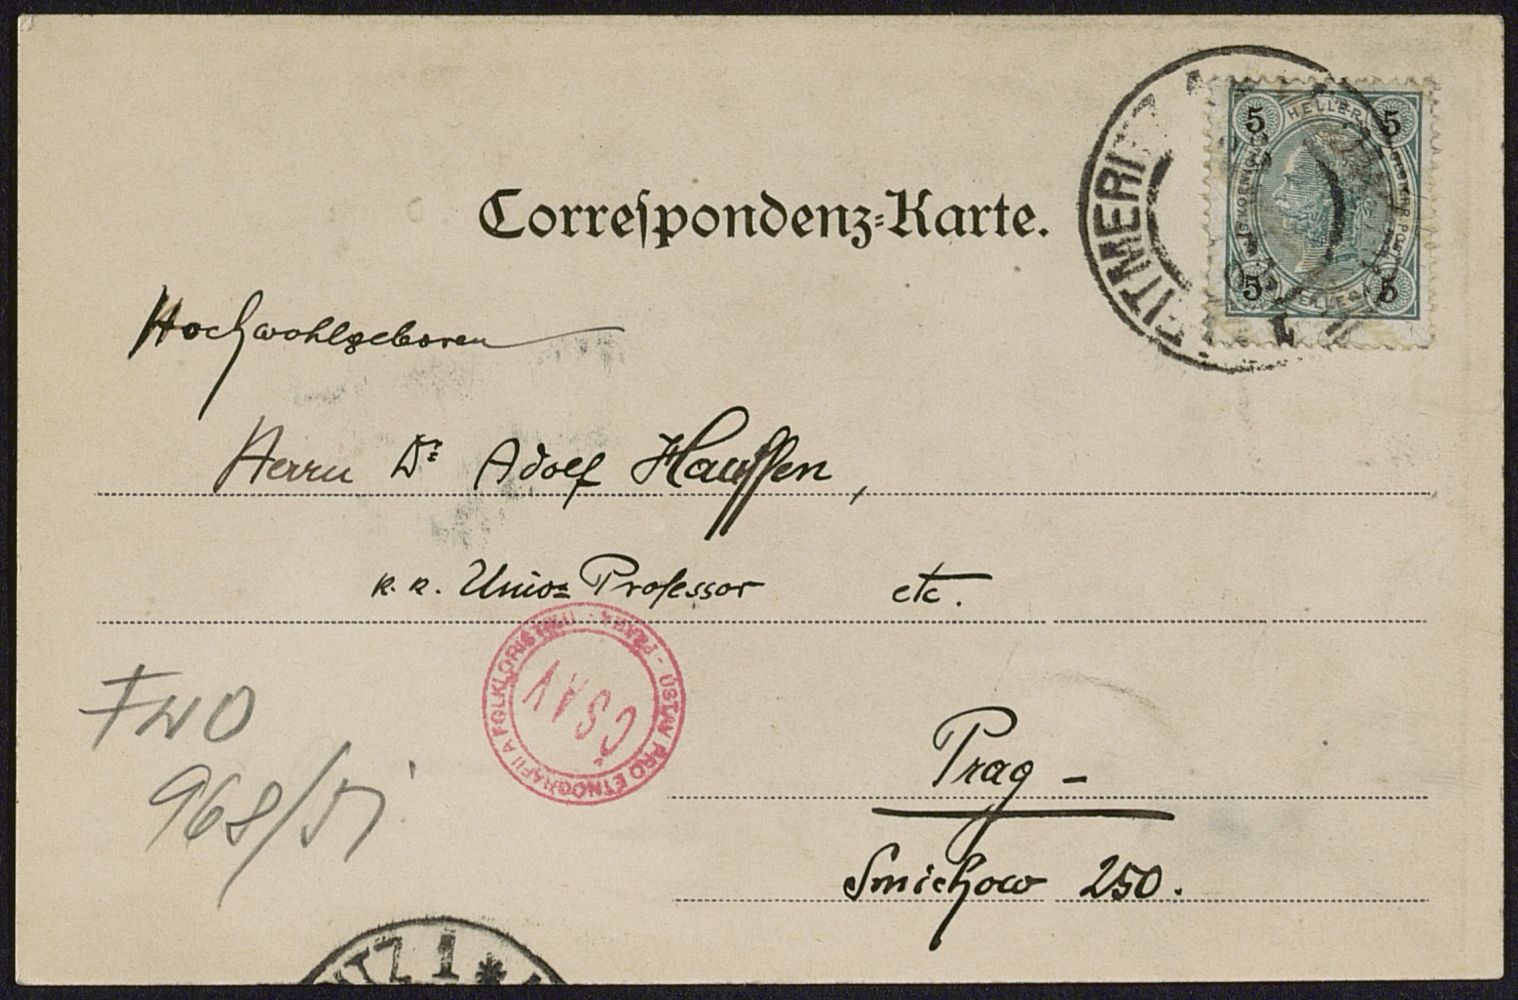 Correspondenz-Karte.
5 HELLER 5
5 5
Hochwohlgeboren
Herrn Dr. Adolf Hauffen,
k. k. Univ. Professor etc.
ÚSTAV PRO ETNOGRAFII A FOLKLORISTIKU - PRAHA -
ČSAV
FNO
968/51
Prag -
Smichow 250.
ITZ 1 *